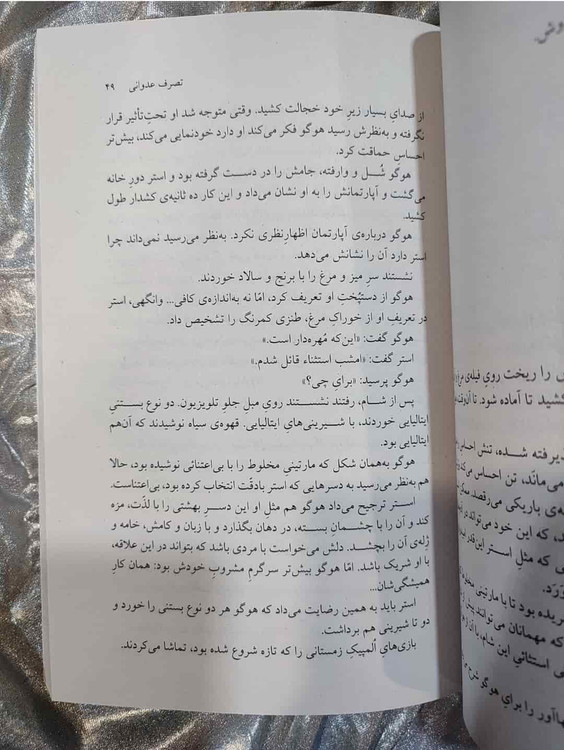 تصرف عدوانی ۴۹
از صدایِ بسیار زیرِ خود خجالت کشید. وقتی متوجه شد او تحتِ‌تأثیر قرار
نگرفته و به‌نظرش رسید هوگو فکر می‌کند او دارد خودنمایی می‌کند، بیش‌تر
احساسِ حماقت کرد.
هوگو شُل و وارفته، جامش را در دست گرفته بود و استر دورِ خانه
می‌گشت و آپارتمانش را به او نشان می‌داد و این کار ده ثانیه‌ی کشدار طول
کشید.
هوگو درباره‌ی آپارتمان اظهارِنظری نکرد. به‌نظر می‌رسید نمی‌داند چرا
استر دارد آن را نشانش می‌دهد.
نشستند سرِ میز و مرغ را با برنج و سالاد خوردند.
هوگو از دستپُختِ او تعریف کرد، امّا نه به‌اندازه‌ی کافی... وانگهی، استر
در تعریفِ او از خوراکِ مرغ، طنزی کمرنگ را تشخیص داد.
هوگو گفت: «این‌که مُهره‌دار است.»
استر گفت: «امشب استثناء قائل شدم.»
هوگو پرسید: «برایِ چی؟»
پس از شام، رفتند نشستند رویِ مبلِ جلوِ تلویزیون. دو نوع بستنیِ
ایتالیایی خوردند، با شیرینی‌هایِ ایتالیایی. قهوه‌ی سیاه نوشیدند که آن‌هم
ایتالیایی بود.
هوگو به‌همان شکل که مارتینیِ مخلوط را با بی‌اعتنائی نوشیده بود، حالا
هم به‌نظر می‌رسید به دسرهایی که استر بادقّت انتخاب کرده بود، بی‌اعتناست.
استر ترجیح می‌داد هوگو هم مثل او این دسرِ بهشتی را با لذّت، مزه
کند و آن را با چشمانِ بسته، در دهان بگذارد و با زبان و کامش، خامه و
ژله‌ی آن را بچشد. دلش می‌خواست با مردی باشد که بتواند در این علاقه،
با او شریک باشد. امّا هوگو بیش‌تر سرگرمِ مشروبِ خودش بود: همان کارِ
همیشگی‌شان...
استر باید به همین رضایت می‌داد که هوگو هر دو نوع بستنی را خورد و
دو تا شیرینی هم برداشت.
بازی‌هایِ اُلمپیکِ زمستانی را که تازه شروع شده بود، تماشا می‌کردند.
را ریخت رویِ فیله‌ی
کشید تا آماده شود.
رفته شده، تنش احساس
می‌ماند، تن احساس
ی باریکی می‌رقصد
که این خود می‌تواند در
که مثلِ استر این‌قدر
ریده بود تا با مارتینی
که مهمانان می‌توانند
استثنائیِ این شام، با
را برایِ هوگو شرح